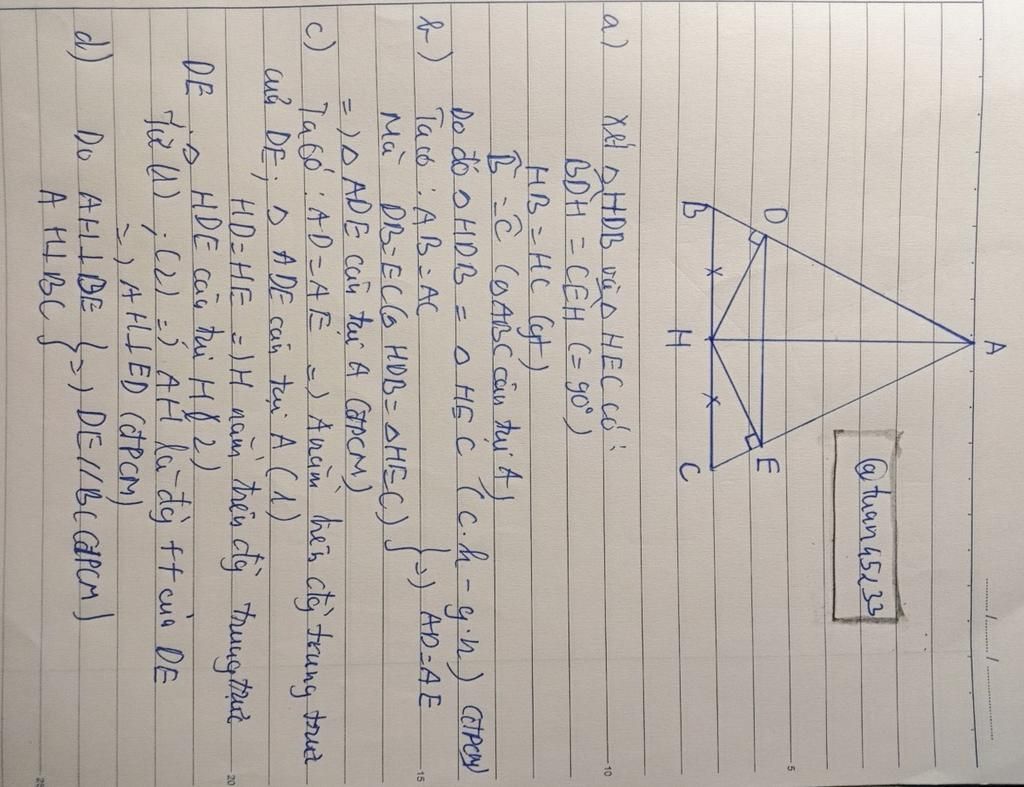 A
@tuan45233
D
E
B
H
C
a) Xét △HDB và △HEC có:
BDH = CEH (= 90°)
HB = HC (gt)
B̂ = Ĉ (△ABC cân tại A)
Do đó △HDB = △HEC (c.h - g.n) (đPCM)
b) Ta có: AB = AC
Mà DB = EC (△HDB = △HEC) } => AD = AE
=> △ADE cân tại A (đPCM)
c) Ta có: AD = AE => A nằm trên đg trung trực
của DE; △ADE cân tại A (1)
HD = HE => H nằm trên đg trung trực
DE △HDE cân tại H (2)
Từ (1), (2) => AH là đg tt của DE
=> AH ⊥ ED (đPCM)
d) Do AH ⊥ DE
AH ⊥ BC } => DE // BC (đPCM)
5
10
15
20
25